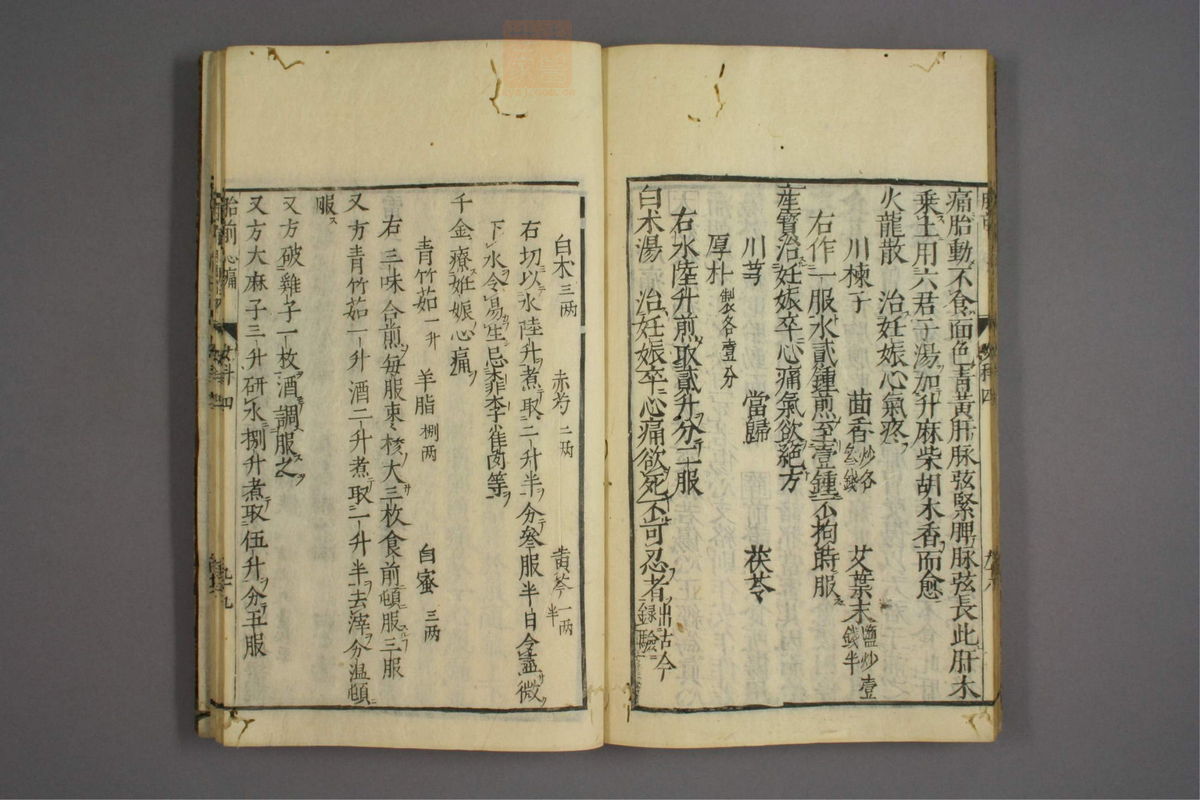 痛胎動不食面色青黃肝脉弦緊脾脉弦長此肝木
乘土用六君子湯加升麻柴胡木香而愈
火龍散 治妊娠心氣疼
川楝子 茴香炒各叄錢 艾葉末鹽炒壹錢半
右作一服水貳鍾煎至壹鍾不拘時服
產寳治妊娠卒心痛氣欲絕方
川芎 當歸 茯苓
厚朴製各壹分
右水陸升煎取貳升分二服
白术湯 治妊娠卒心痛欲死不可忍者出古今録驗
白术三两 赤芍二两 黃芩一两半
右切以水陸升煮取二升半分叄服半日令盡微
下水令易生忌桃李雀肉等
千金療妊娠心痛
青竹茹一升 羊脂捌两 白蜜三两
右三味合煎每服棗核大三枚食前頓服三服
又方青竹茹一升酒二升煮取一升半去滓分温頓
服
又方破雞子一枚酒調服之
又方大麻子三升研水捌升煮取伍升分五服
胎前心痛 女科四 九十九